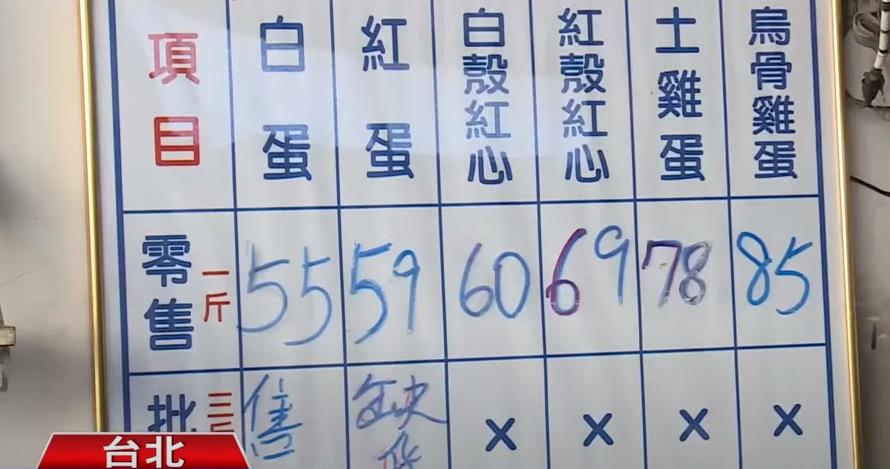 項目 白蛋 紅蛋 白殼紅心 紅殼紅心 土雞蛋 烏骨雞蛋
零售 一斤 55 59 60 69 78 85
批 三 售 缺 × × × ×
台北